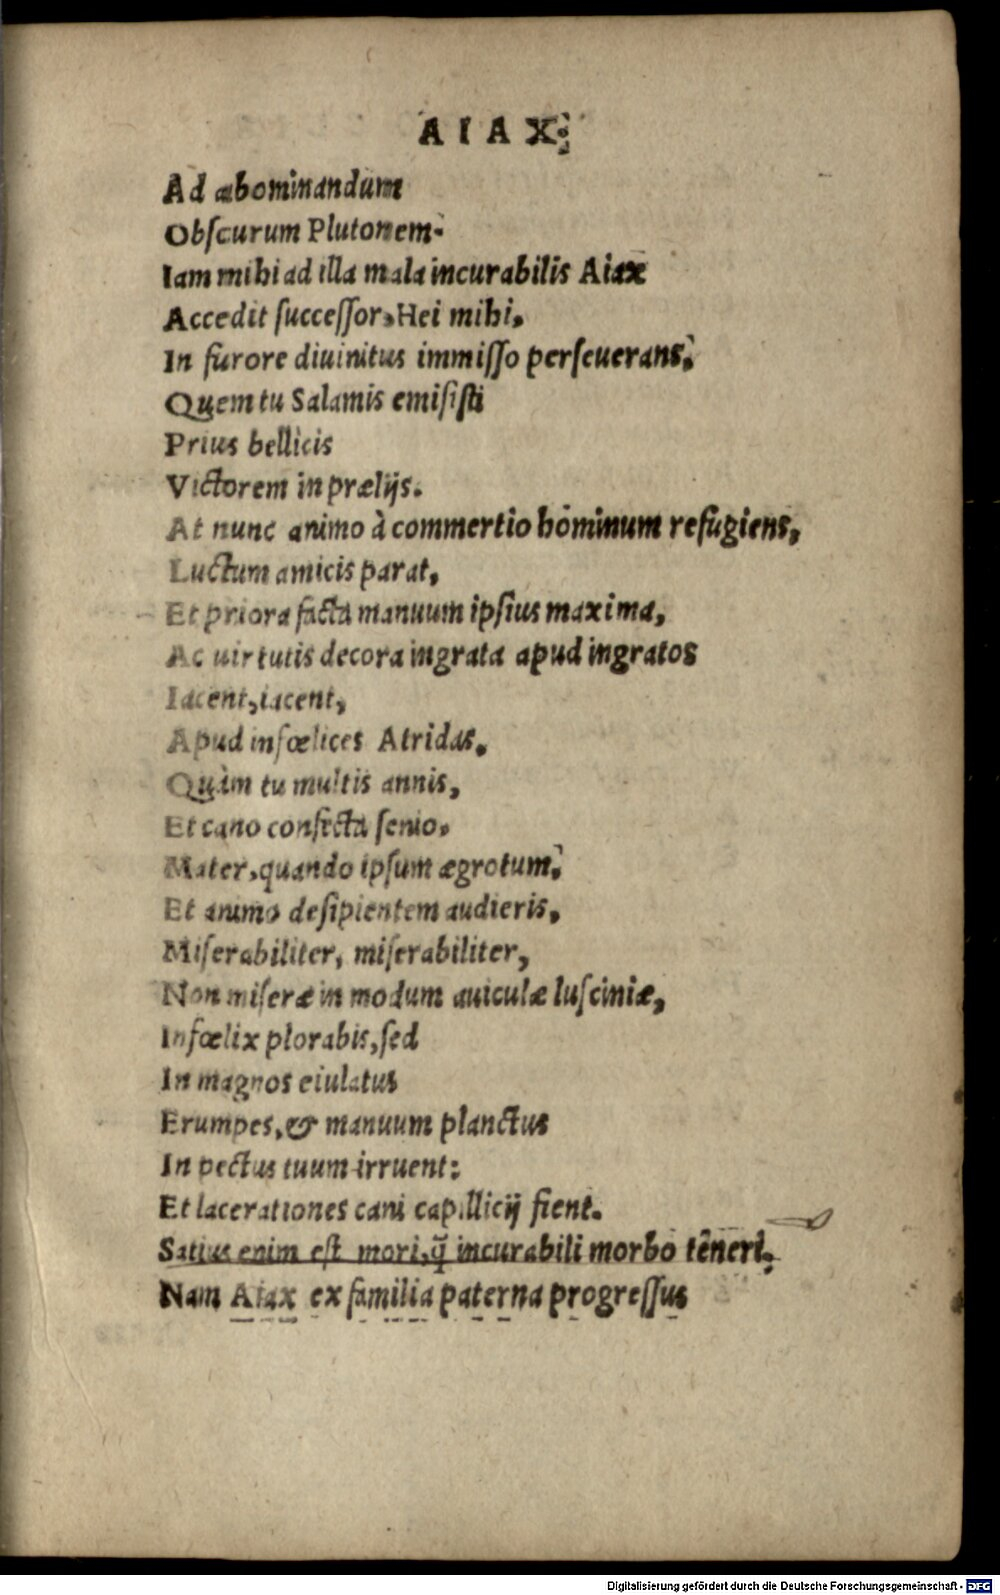 AIAX.
Ad abominandum
Obſcurum Plutonem.
Iam mihi ad illa mala incurabilis Aiax
Accedit ſucceſſor, Hei mihi,
In furore diuinitus immiſſo perſeuerans,
Quem tu Salamis emiſiſti
Prius bellicis
Victorem in prælijs.
At nunc animo à commertio hominum refugiens,
Luctum amicis parat,
Et priora facta manuum ipſius maxima,
Ac uirtutis decora ingrata apud ingratos
Iacent, iacent,
Apud infœlices Atridas.
Quàm tu multis annis,
Et cano confecta ſenio.
Mater, quando ipſum ægrotum,
Et animo deſipientem audieris,
Miſerabiliter, miſerabiliter,
Non miſeræ in modum auiculæ luſciniæ,
Infœlix plorabis, ſed
In magnos eiulatus
Erumpes, & manuum planctus
In pectus tuum irruent:
Et lacerationes cani capillicij fient.
Satius enim eſt mori, q̃ incurabili morbo teneri.
Nam Aiax ex familia paterna progreſſus
Digitalisierung gefördert durch die Deutsche Forschungsgemeinschaft - DFG